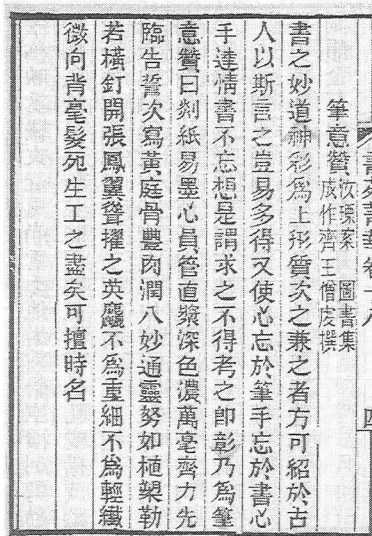 書苑菁華卷十八　四
筆意贊汝瑮案圖書集成作齊王僧虔撰
書之妙道神彩爲上形質次之兼之者方可紹於古
人以斯言之豈易多得又使心忘於筆手忘於書心
手達情書不忘想是謂求之不得考之卽彰乃爲筆
意贊曰剡紙易墨心員管直漿深色濃萬毫齊力先
臨告誓次寫黃庭骨豐肉潤入妙通靈努如植槊勒
若橫釘開張鳳翼聳擢之英麤不爲重細不爲輕纖
微向背毫髮死生工之盡矣可擅時名